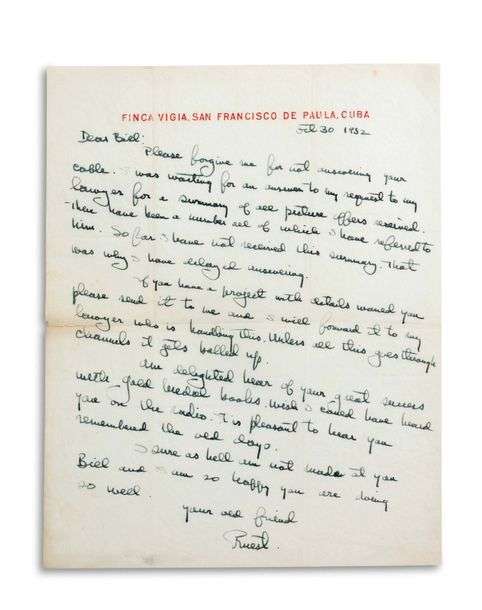 FINCA VIGIA, SAN FRANCISCO DE PAULA, CUBA
30 1952
Dear Bill:
Please forgive me for not answering your
cable. I was waiting for an answer to my request to my
lawyer for a summary of all picture offers received.
There have been a number all of which I have referred to
him. So far I have not received this summary. That
was why I have delayed answering.
If you have a project with details would you
please send it to me and I will forward it to my
lawyer who is handling this. Unless all this goes through
channels it gets balled up.
Am delighted hear of your great success
with gold medal books. Wish I could have heard
you on the radio. It is pleasant to hear you
remembered the old days.
I sure as hell am not made at you
Bill and I am so happy you are doing
so well.
Your old friend
Ernest.